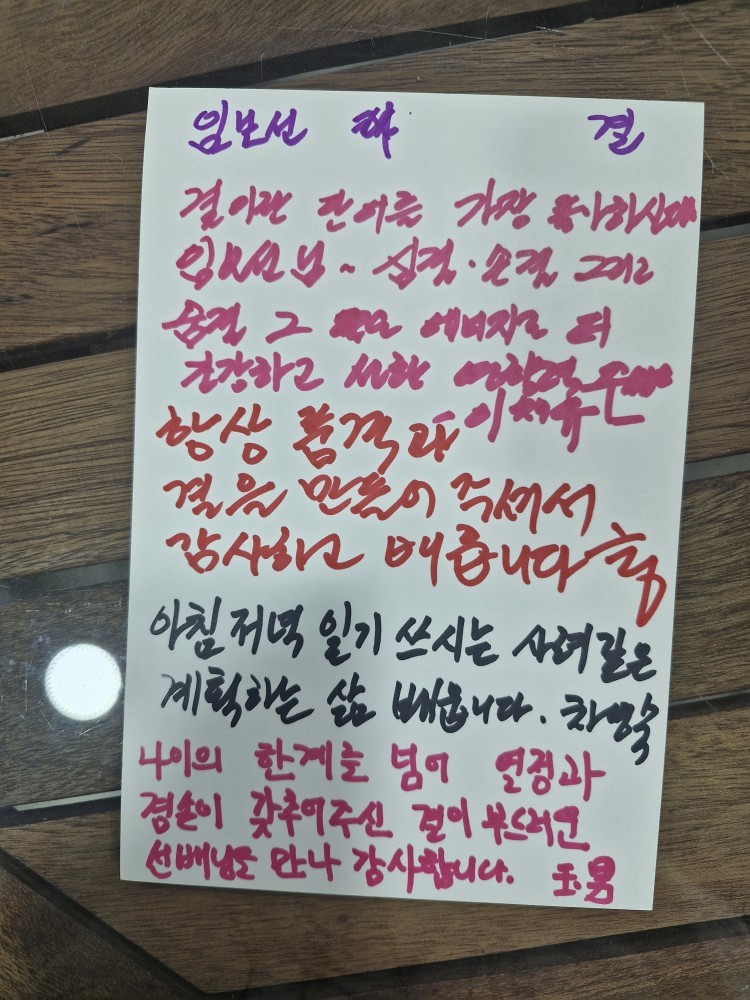 임보선 결
결이란 단어를 가장 좋아하신다
임보선 님~ 십결·손결 그리고
숨결 그 에너지로 더
건강하고 선한
항상 품격과 이
결을 만들어 주셔서
감사하고 배웁니다
아침저녁 일기 쓰시는 사려깊은
계획하는 삶 배웁니다. 차명숙
나이의 한계를 넘어 열정과
겸손이 갖추어주신 결이 부드러운
선배님을 만나 감사합니다. 玉男